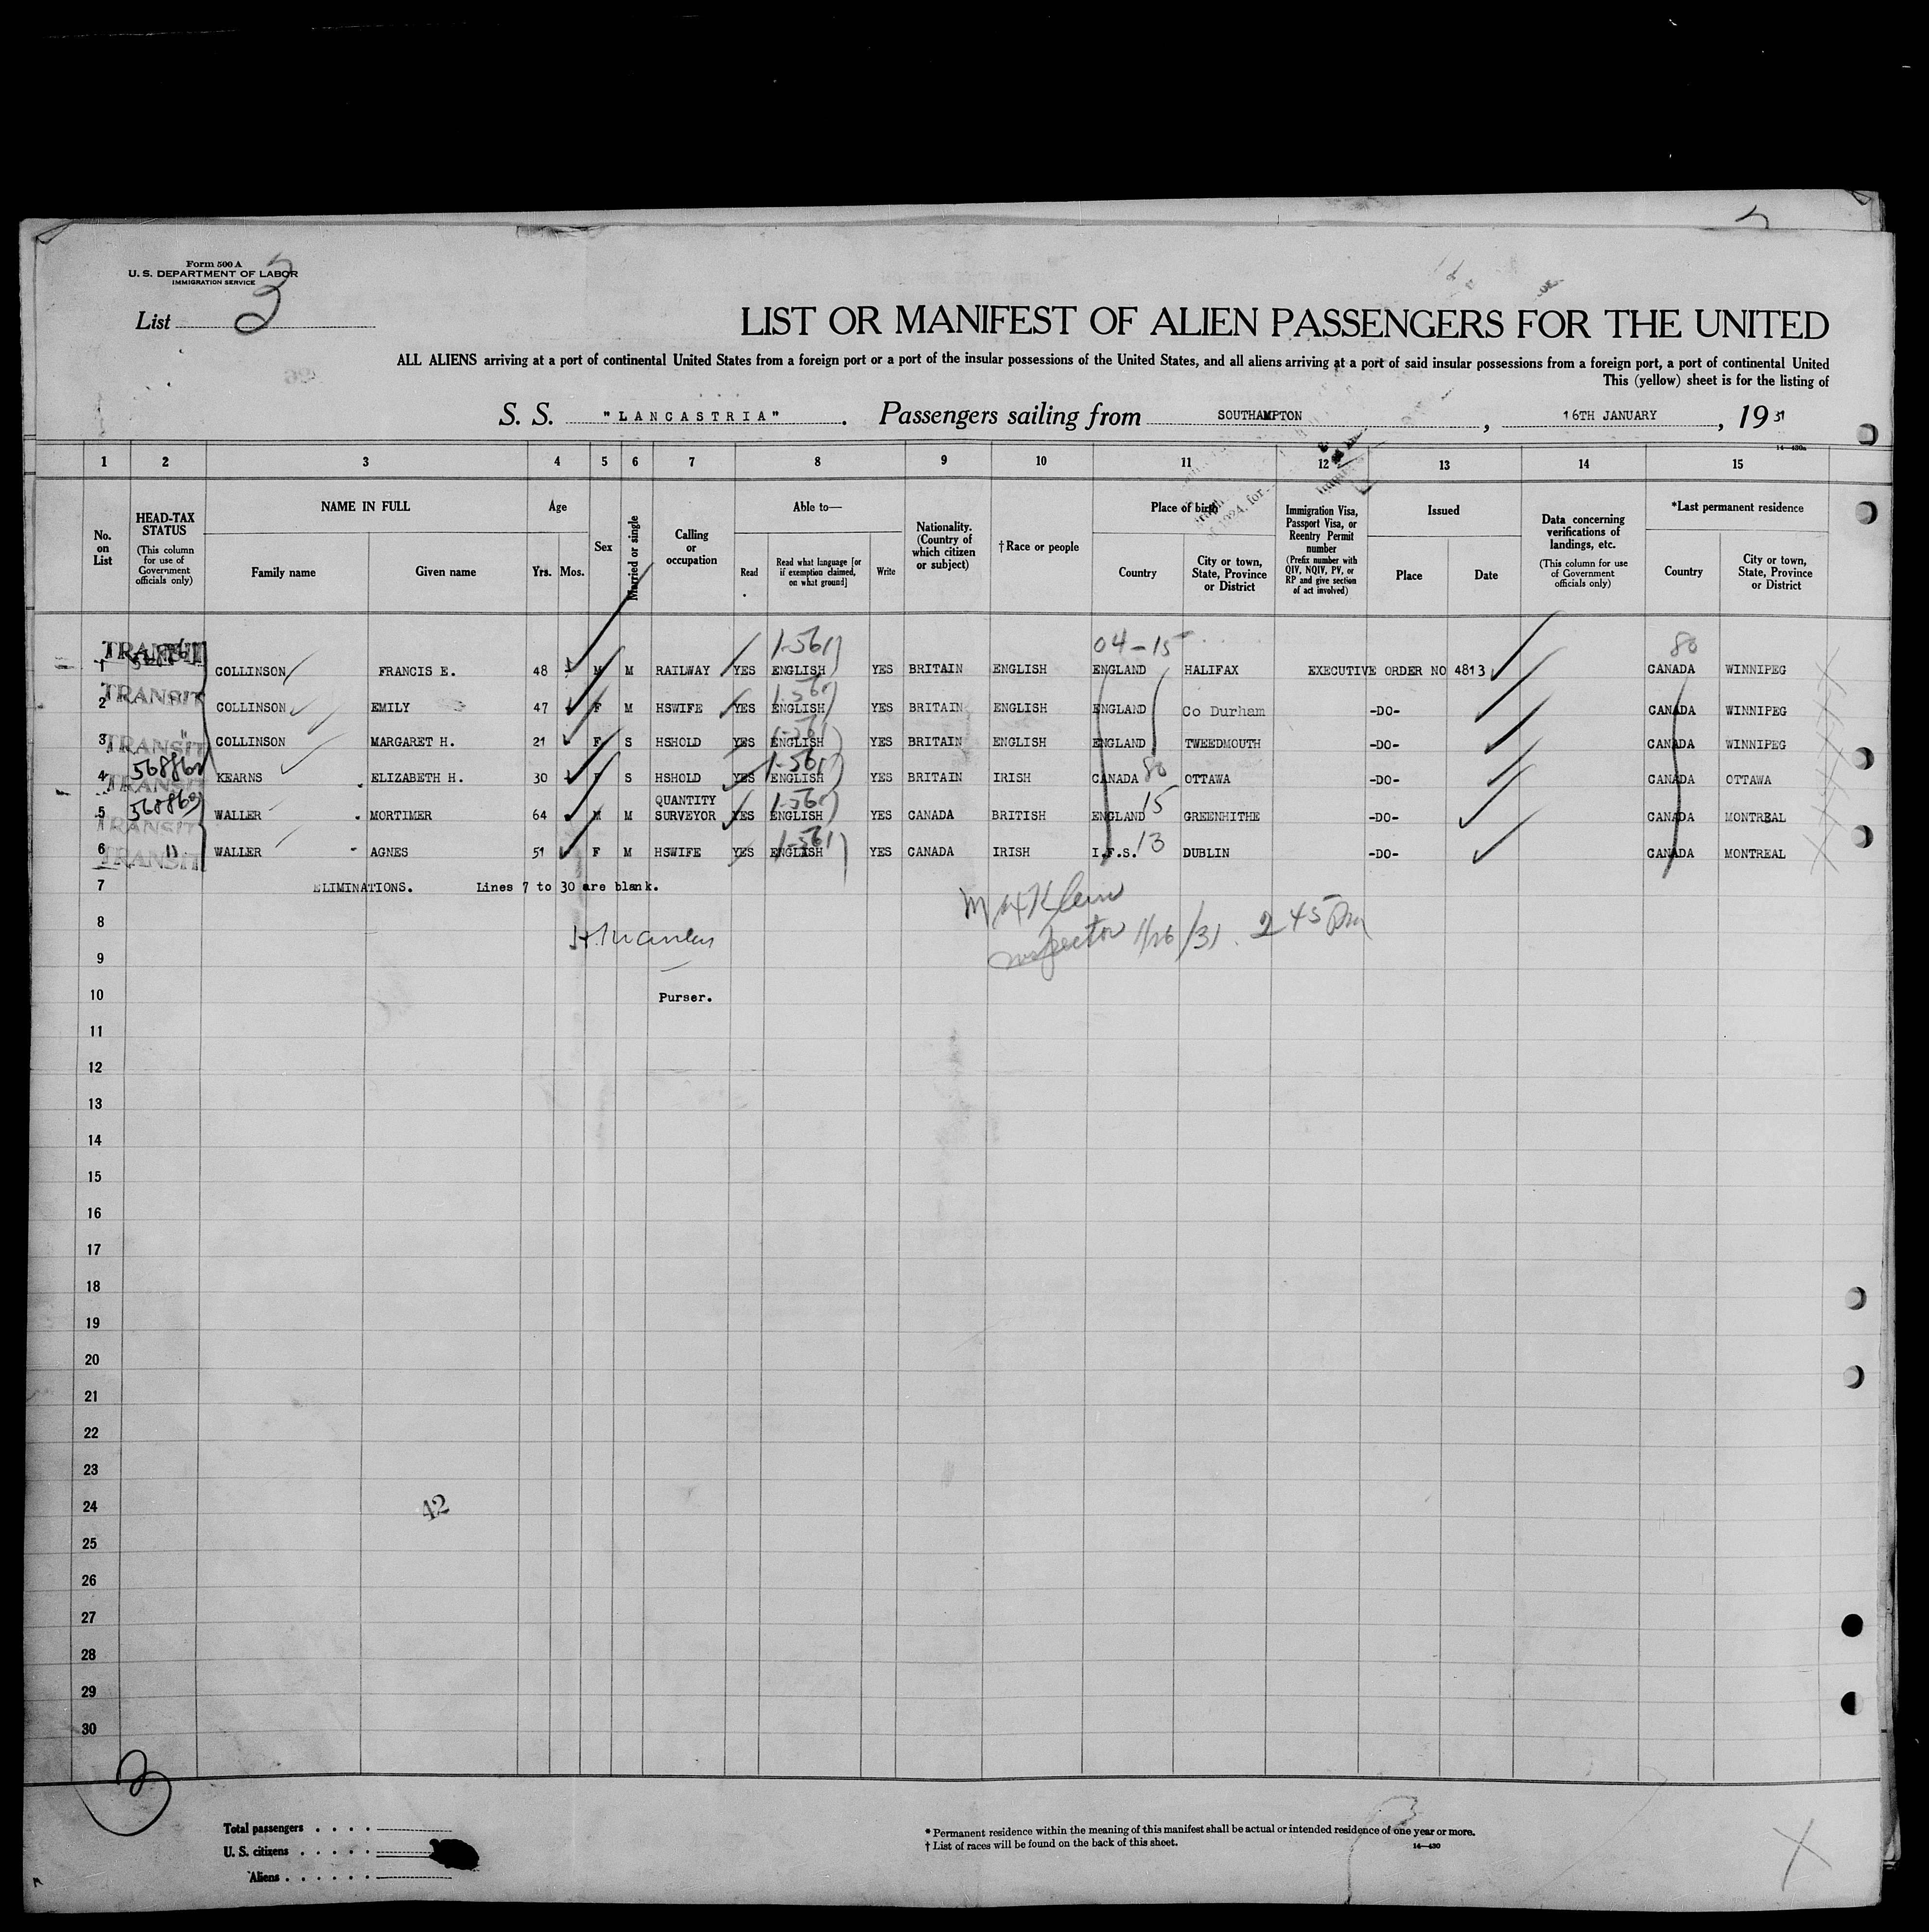 Form 500 A
U. S. DEPARTMENT OF LABOR
IMMIGRATION SERVICE
List 3
LIST OR MANIFEST OF ALIEN PASSENGERS FOR THE UNITED
ALL ALIENS arriving at a port of continental United States from a foreign port or a port of the insular possessions of the United States, and all aliens arriving at a port of said insular possessions from a foreign port, a port of continental United
This (yellow) sheet is for the listing of
S. S. "LANCASTRIA". Passengers sailing from SOUTHAMPTON, 16TH JANUARY, 1931
14—430a
1 2 3 4 5 6 7 8 9 10 11 12 13 14 15
No. on List
HEAD-TAX STATUS (This column for use of Government officials only)
NAME IN FULL
Family name Given name
Age
Yrs. Mos.
Sex
Married or single
Calling or occupation
Able to—
Read
Read what language [or if exemption claimed, on what ground]
Write
Nationality. (Country of which citizen or subject)
†Race or people
Place of birth
Country
City or town, State, Province or District
Immigration Visa, Passport Visa, or Reentry Permit number (Prefix number with QIV, NQIV, PV, or RP and give section of act involved)
Issued
Place Date
Data concerning verifications of landings, etc. (This column for use of Government officials only)
*Last permanent residence
Country
City or town, State, Province or District
TRANSIT 1-561 04-15 80
1 COLLINSON FRANCIS E. 48 M M RAILWAY YES ENGLISH YES BRITAIN ENGLISH ENGLAND HALIFAX EXECUTIVE ORDER NO 4813 CANADA WINNIPEG
TRANSIT 1-561
2 COLLINSON EMILY 47 F M HSWIFE YES ENGLISH YES BRITAIN ENGLISH ENGLAND Co Durham -DO- CANADA WINNIPEG
TRANSIT " 1-561
3 COLLINSON MARGARET H. 21 F S HSHOLD YES ENGLISH YES BRITAIN ENGLISH ENGLAND TWEEDMOUTH -DO- CANADA WINNIPEG
TRANSIT 568862 1-561
4 KEARNS ELIZABETH H. 30 F S HSHOLD YES ENGLISH YES BRITAIN IRISH CANADA 80 OTTAWA -DO- CANADA OTTAWA
TRANSIT 568863 QUANTITY 1-561 15
5 WALLER MORTIMER 64 M M SURVEYOR YES ENGLISH YES CANADA BRITISH ENGLAND GREENHITHE -DO- CANADA MONTREAL
TRANSIT " 1-561
6 WALLER AGNES 51 F M HSWIFE YES ENGLISH YES CANADA IRISH I.F.S. 13 DUBLIN -DO- CANADA MONTREAL
7 ELIMINATIONS. Lines 7 to 30 are blank.
8 Klein
9 Inspector 1/26/31. 2 45 Pm
10 Purser.
11
12
13
14
15
16
17
18
19
20
21
22
23
24 42
25
26
27
28
29
30
Total passengers . . . .
U. S. citizens . . . . .
Aliens . . . . . .
* Permanent residence within the meaning of this manifest shall be actual or intended residence of one year or more.
† List of races will be found on the back of this sheet.
14—430